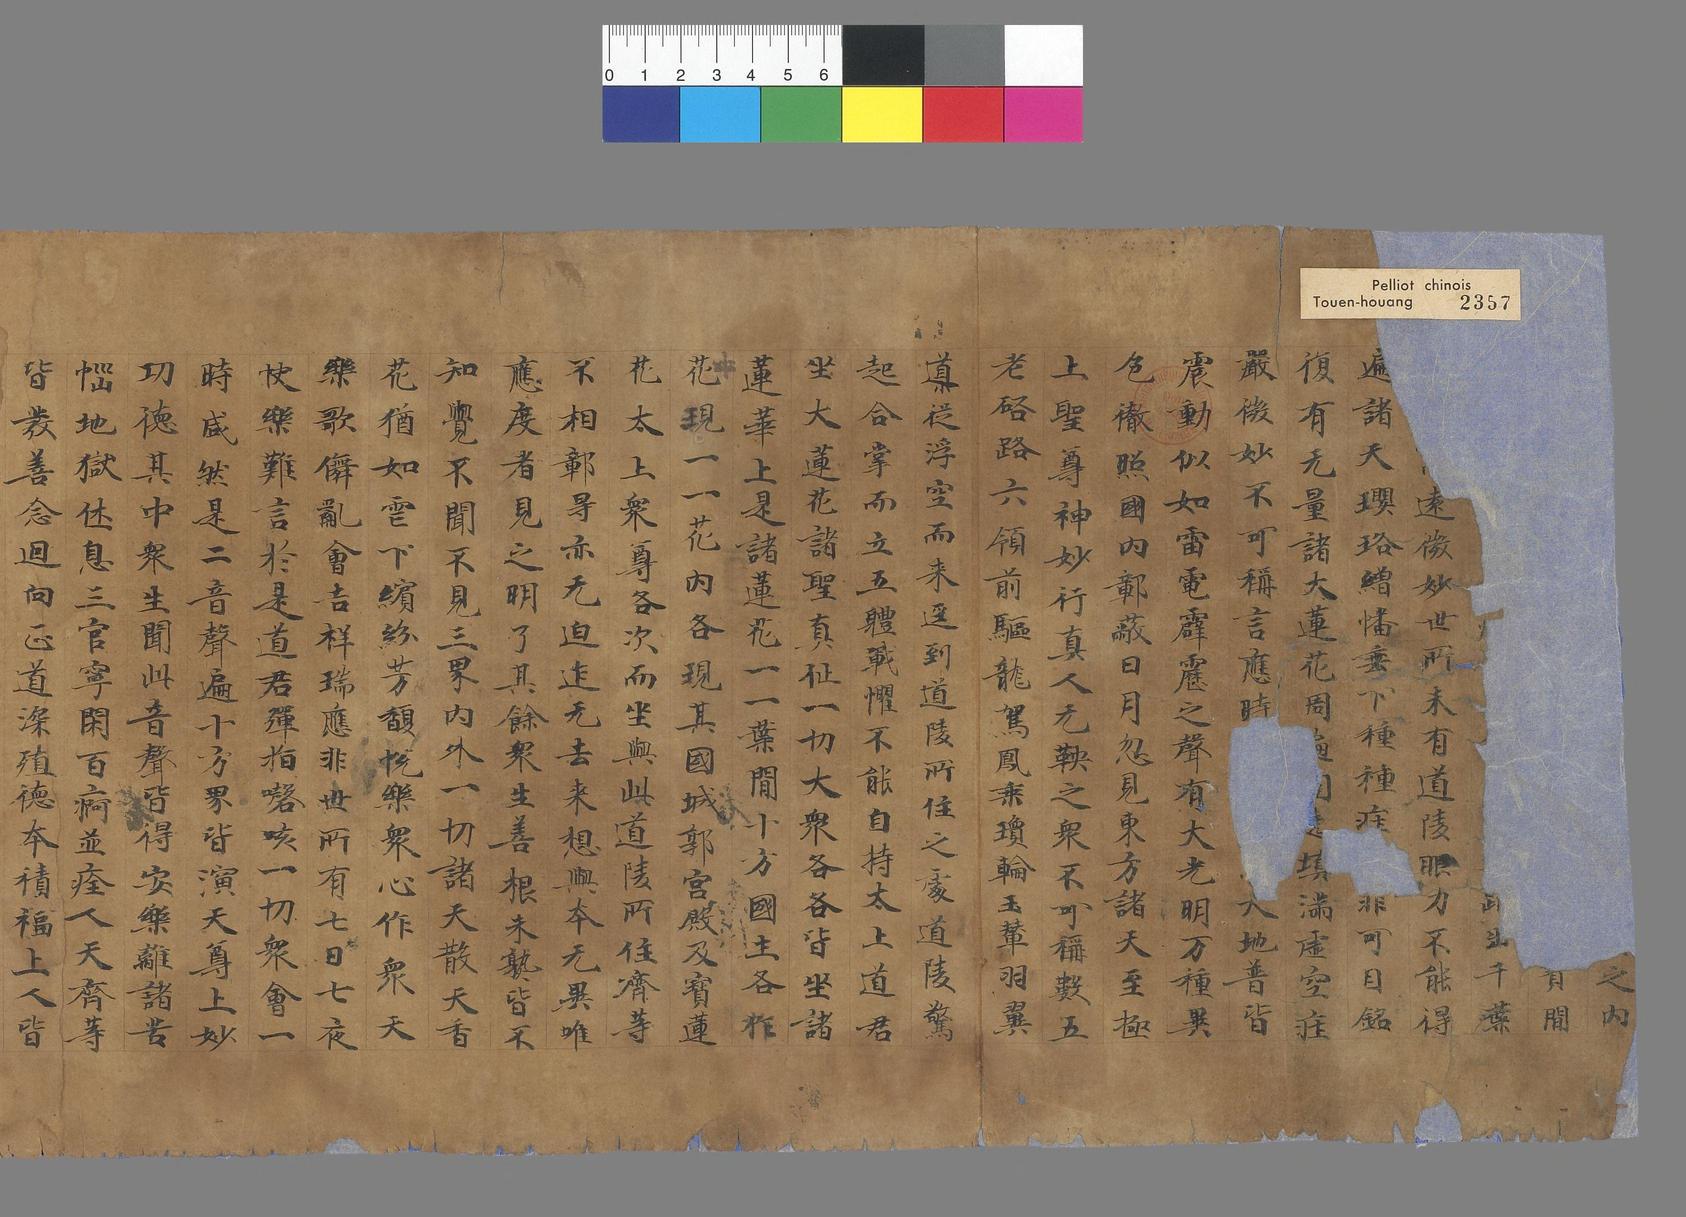 Pelliot chinois
Touen-houang 2357
0 1 2 3 4 5 6
之内
間
出千葉
遠微妙世所未有道陵眼力不能得
遍諸天瓔珞繒幡垂下種種庄非可目銘
復有无量諸大蓮花周遍填滿虛空庄
嚴微妙不可稱言應時大地普皆
震動似如雷電霹靂之聲有大光明万種異
色徹照國内鄣蔽日月忽見東方諸天至極
上聖尊神妙行真人无鞅之衆不可稱數五
老啓路六領前驅龍駕鳳乘瓊輪玉輦羽翼
導從浮空而来逕到道陵所住之處道陵驚
起合掌而立五體戰懼不能自持太上道君
坐大蓮花諸聖真仙一切大衆各各皆坐諸
蓮華上是諸蓮花一一葉間十方國土各作
花現一一花内各現其國城郭宮殿及寶蓮
花太上衆尊各次而坐與此道陵所住齊等
不相鄣㝵亦无迫迮无去来想與本无異唯
應度者見之明了其餘衆生善根未熟皆不
知覺不聞不見三界内外一切諸天散天香
花猶如雲下繽紛芳馥悅樂衆心作衆天
樂歌儛亂會吉祥瑞應非世所有七日七夜
快樂難言於是道君彈指謦咳一切衆會一
時咸然是二音聲遍十方界皆演天尊上妙
功德其中衆生聞此音聲皆得安樂離諸苦
惱地獄休息三官寧閑百痾並痊人天齊等
皆發善念迴向正道深殖德本積福上人皆